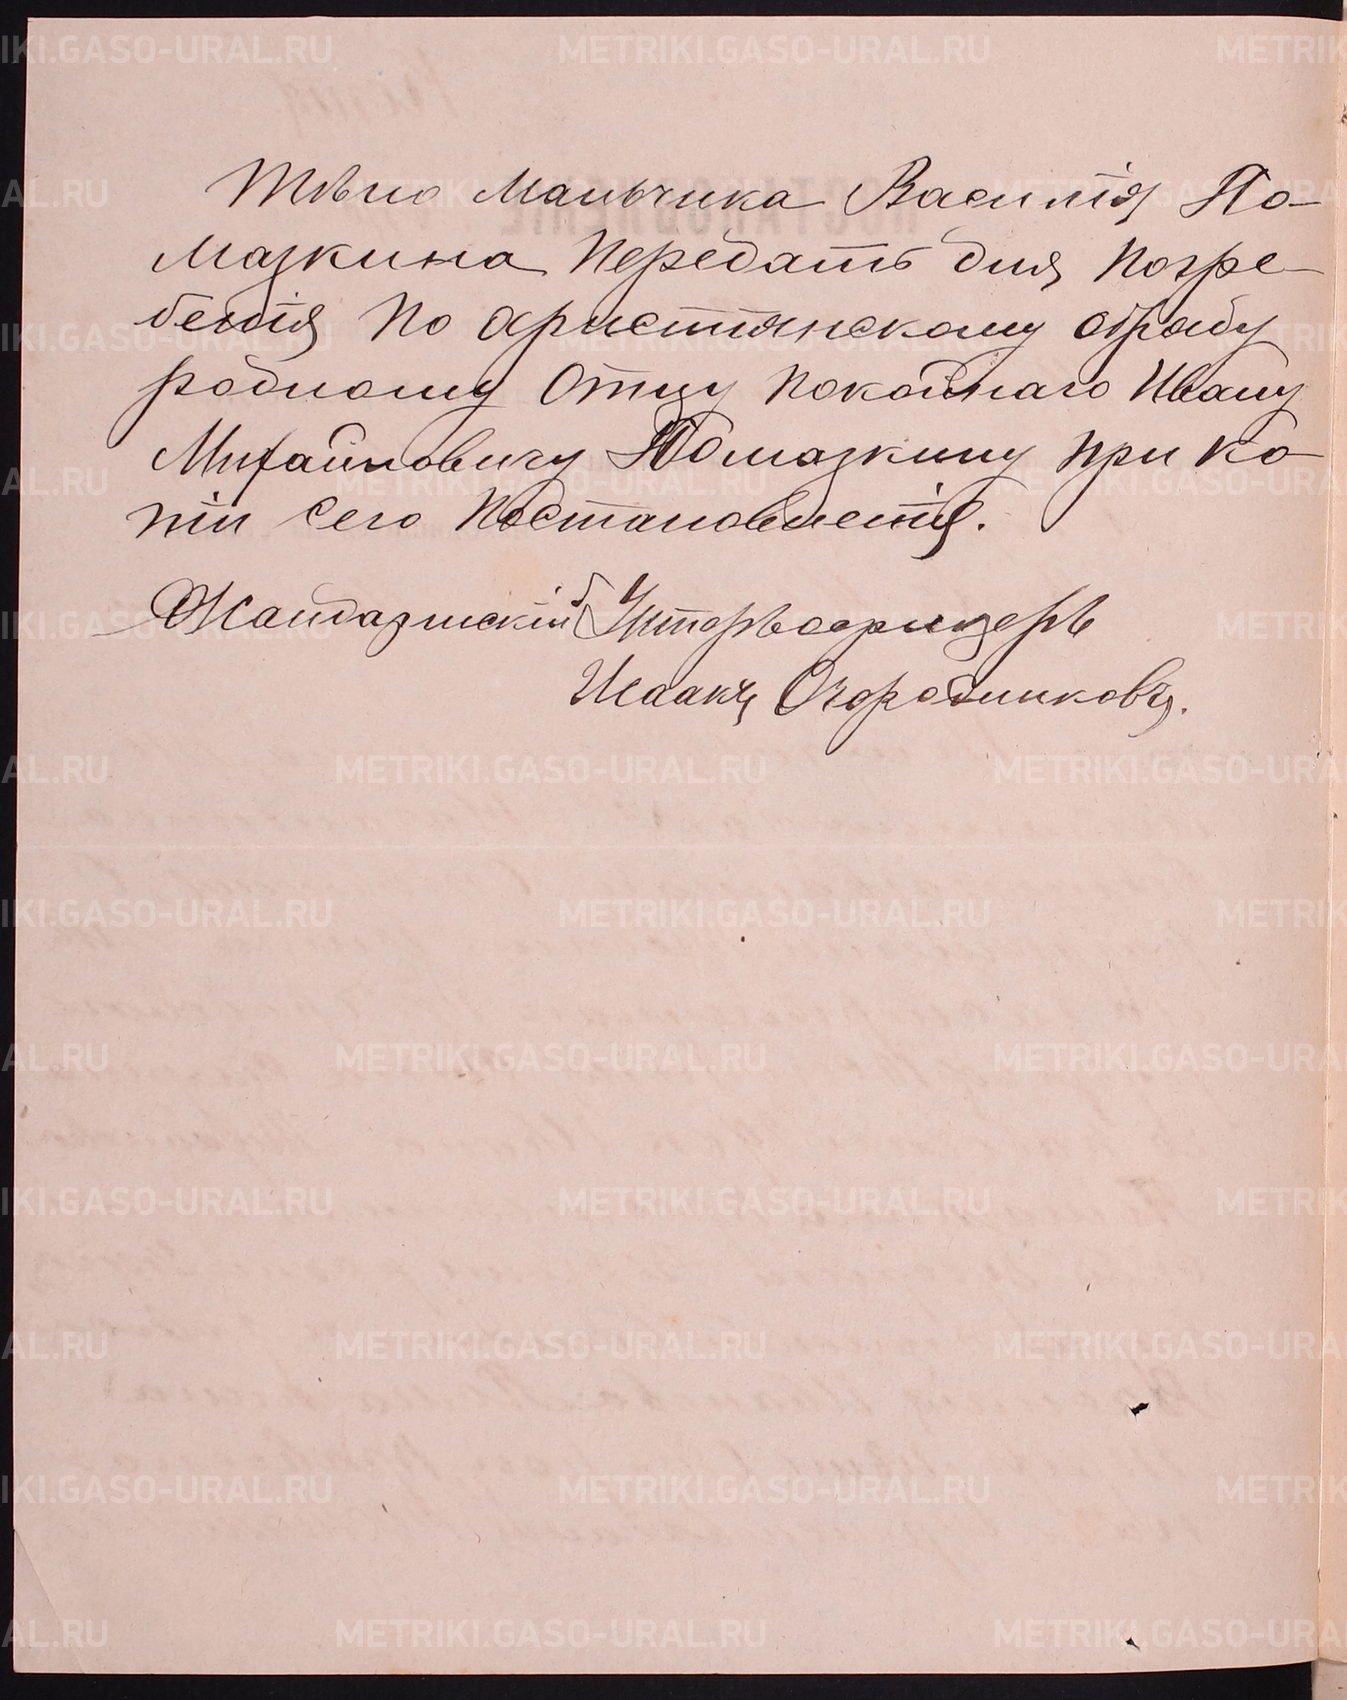 Тѣло Мальчика Василія По-
мазкина Передать для Погре-
бенія По христіянскому обряду
родному Отцу Покойнаго Ивану
Михайловичу Помазкину При Ко-
піи Сего Постановленія.
Жандармскій Унтеръ офицеръ
Исаакъ Огородниковъ.
METRIKI.GASO-URAL.RU